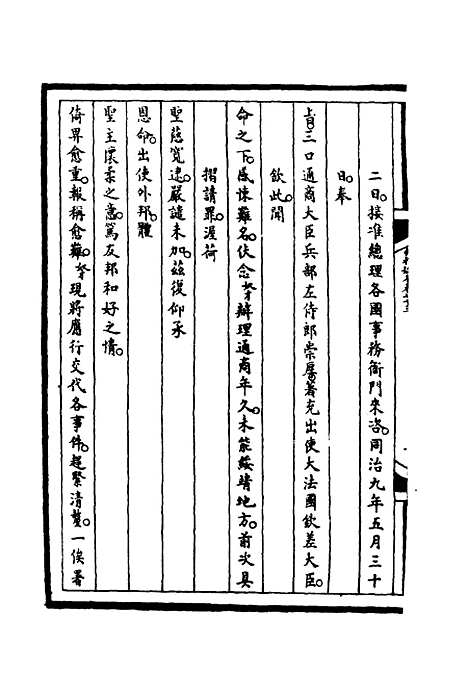 二日。接准總理各國事務衙門來咨。同治九年五月三十
日。奉
上諭。三口通商大臣兵部左侍郎崇厚。著充出使大法國欽差大臣。
欽此。聞
命之下。感悚難名。伏念奴才辦理通商年久。未能綏靖地方。前次具
摺請罪。渥荷
聖慈寬逮。嚴譴未加。茲復仰承
恩命。出使外邦。體
聖主懷柔之意。篤友邦和好之情。
倚畀愈重。報稱愈難。奴才現將應行交代各事件。趕緊清釐。一俟署